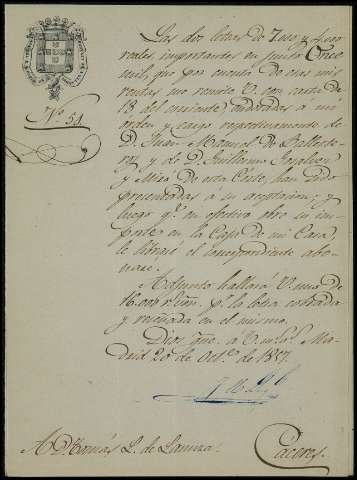 Nº 51
Las dos letras de 7.000 y 4.000
reales, importantes en junto Once
mil, que por cuenta de esas mis
rentas me remite V. con carta de
13 del corriente, endosadas á mi
orden y cargo respectivamente de
D. Juan Manuel de Balleste-
ros y de D. Guillermo
y de esta Corte, han sido
presentadas á su aceptacion; y
luego qº en efectivo obre su im-
porte en la Caja de mi Casa,
le libraré el correspondiente abo-
naré.
Adjunto hallará V. una de
16.000 r. vn. pª la cobrada
y reseñada en el mismo.
Dios gue. á V. m. aº. Ma-
drid 20 de Oct.e de 1857.
A D. Tomás L. de Lanuza.
Cáceres.